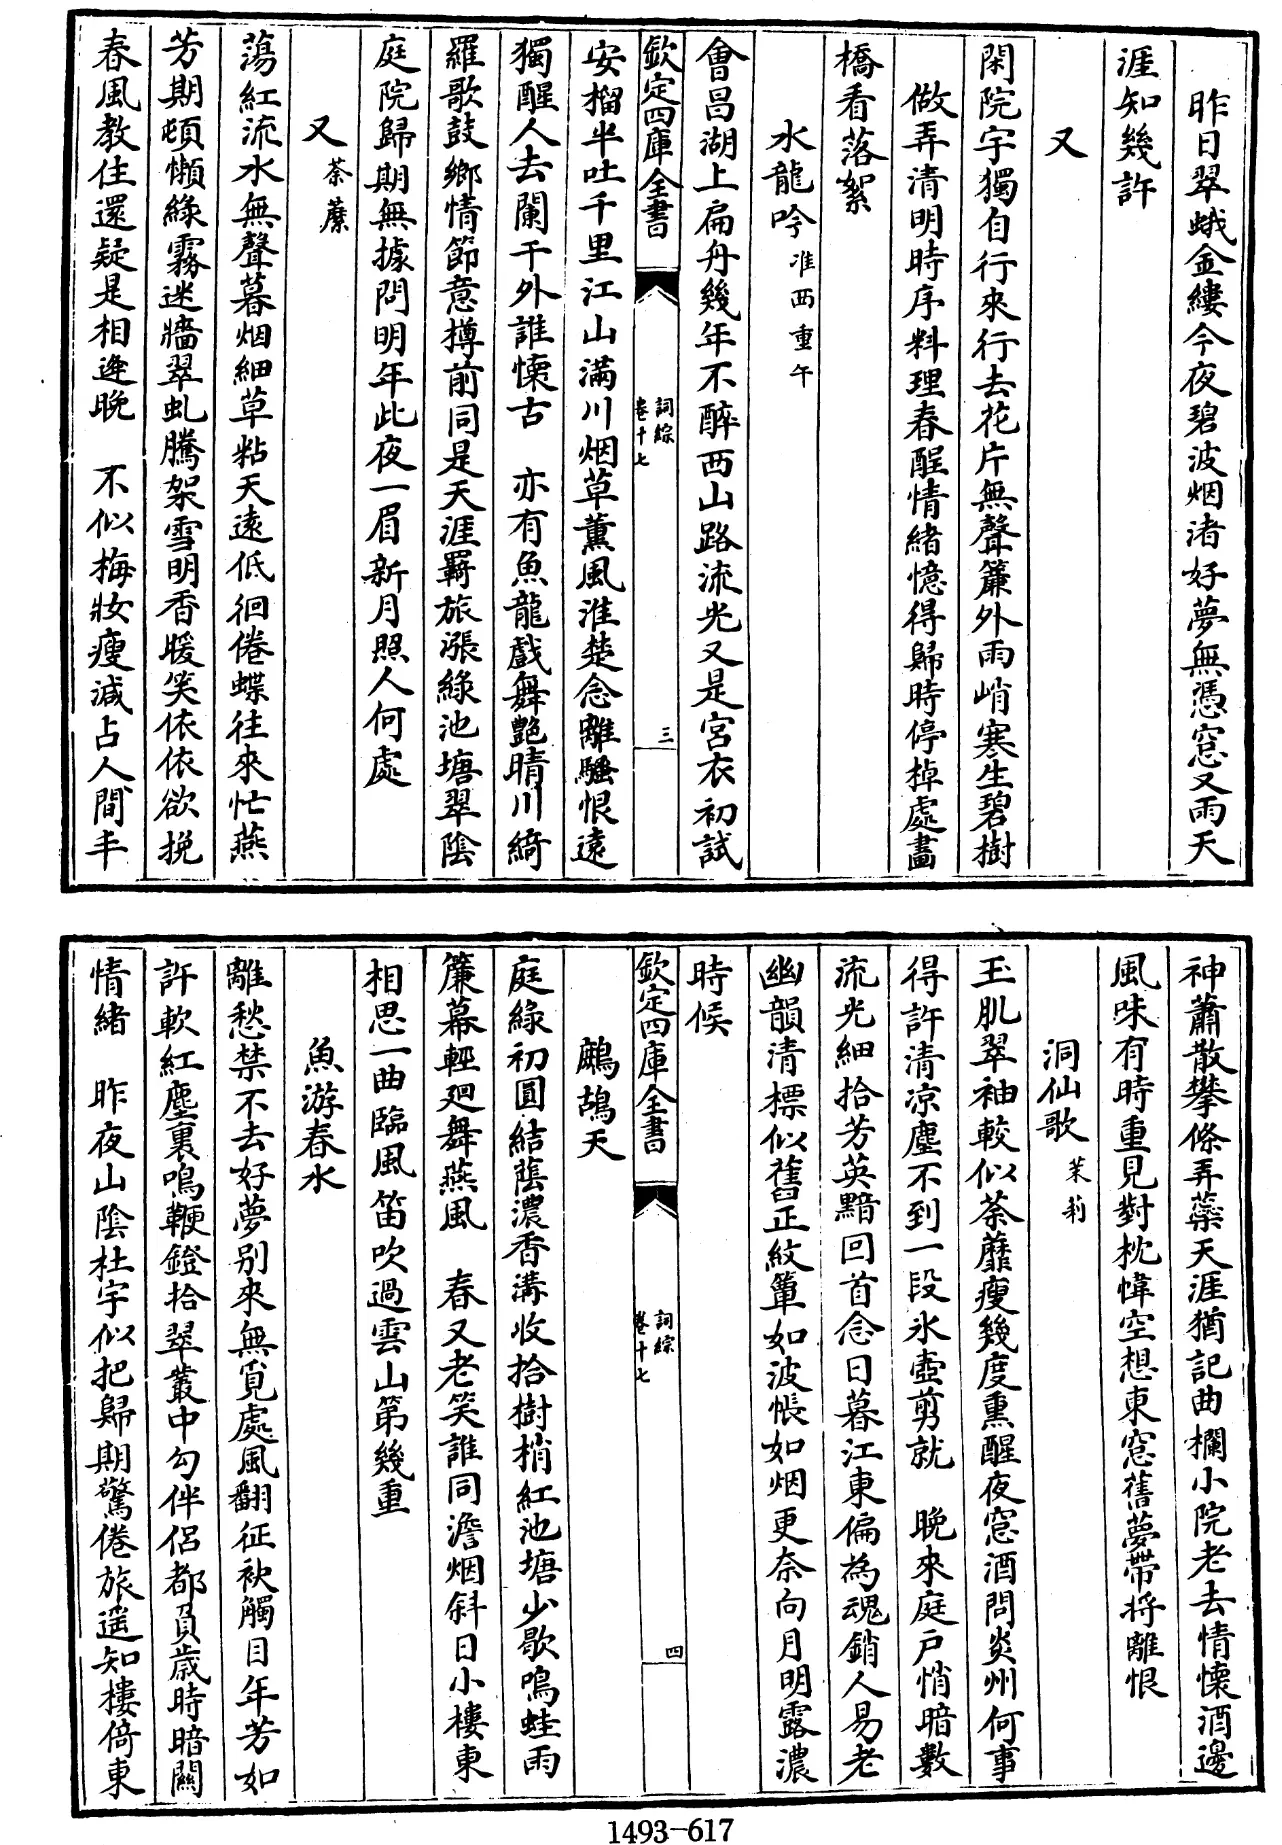 昨日翠蛾金縷今夜碧波烟渚好夢無憑窓又雨天
涯知幾許
又
閑院宇獨自行來行去花片無聲簾外雨峭寒生碧樹
做弄清明時序料理春酲情緒憶得歸時停棹處畫
橋看落絮
水龍吟淮西重午
會昌湖上扁舟幾年不醉西山路流光又是宫衣初試
安榴半吐千里江山滿川烟草薰風淮楚念離騷恨遠
獨醒人去闌干外誰懷古　亦有魚龍戲舞艷晴川綺
羅歌鼓鄉情節意樽前同是天涯羇旅漲綠池塘翠陰
庭院歸期無據問明年此夜一眉新月照人何處
又荼蘼
蕩紅流水無聲暮烟細草粘天遠低徊倦蝶往來忙燕
芳期頓懶綠霧迷牆翠虬騰架雪明香暖笑依依欲挽
春風教住還疑是相逢晚　不似梅妝瘦減占人間丰
欽定四庫全書
詞綜
卷十七
三
神蕭散攀條弄蘂天涯猶記曲欄小院老去情懷酒邊
風味有時重見對枕幃空想東窓舊夢帶將離恨
洞仙歌茉莉
玉肌翠袖較似荼蘼瘦幾度熏醒夜窓酒問炎州何事
得許清凉塵不到一段氷壺剪就　晚來庭户悄暗數
流光細拾芳英黯回首念日暮江東偏為魂銷人易老
幽韻清標似舊正紋簟如波帳如烟更奈向月明露濃
時候
鷓鴣天
庭綠初圓結蔭濃香溝收拾樹梢紅池塘少歇鳴蛙雨
簾幕輕廻舞燕風　春又老笑誰同澹烟斜日小樓東
相思一曲臨風笛吹過雲山第幾重
魚游春水
離愁禁不去好夢别來無覓處風翻征袂觸目年芳如
許軟紅塵裏鳴鞭鐙拾翠叢中勾伴侣都負歲時暗闗
情緒　昨夜山陰杜宇似把歸期驚倦旅遥知樓倚東
欽定四庫全書
詞綜
卷十七
四
1493-617